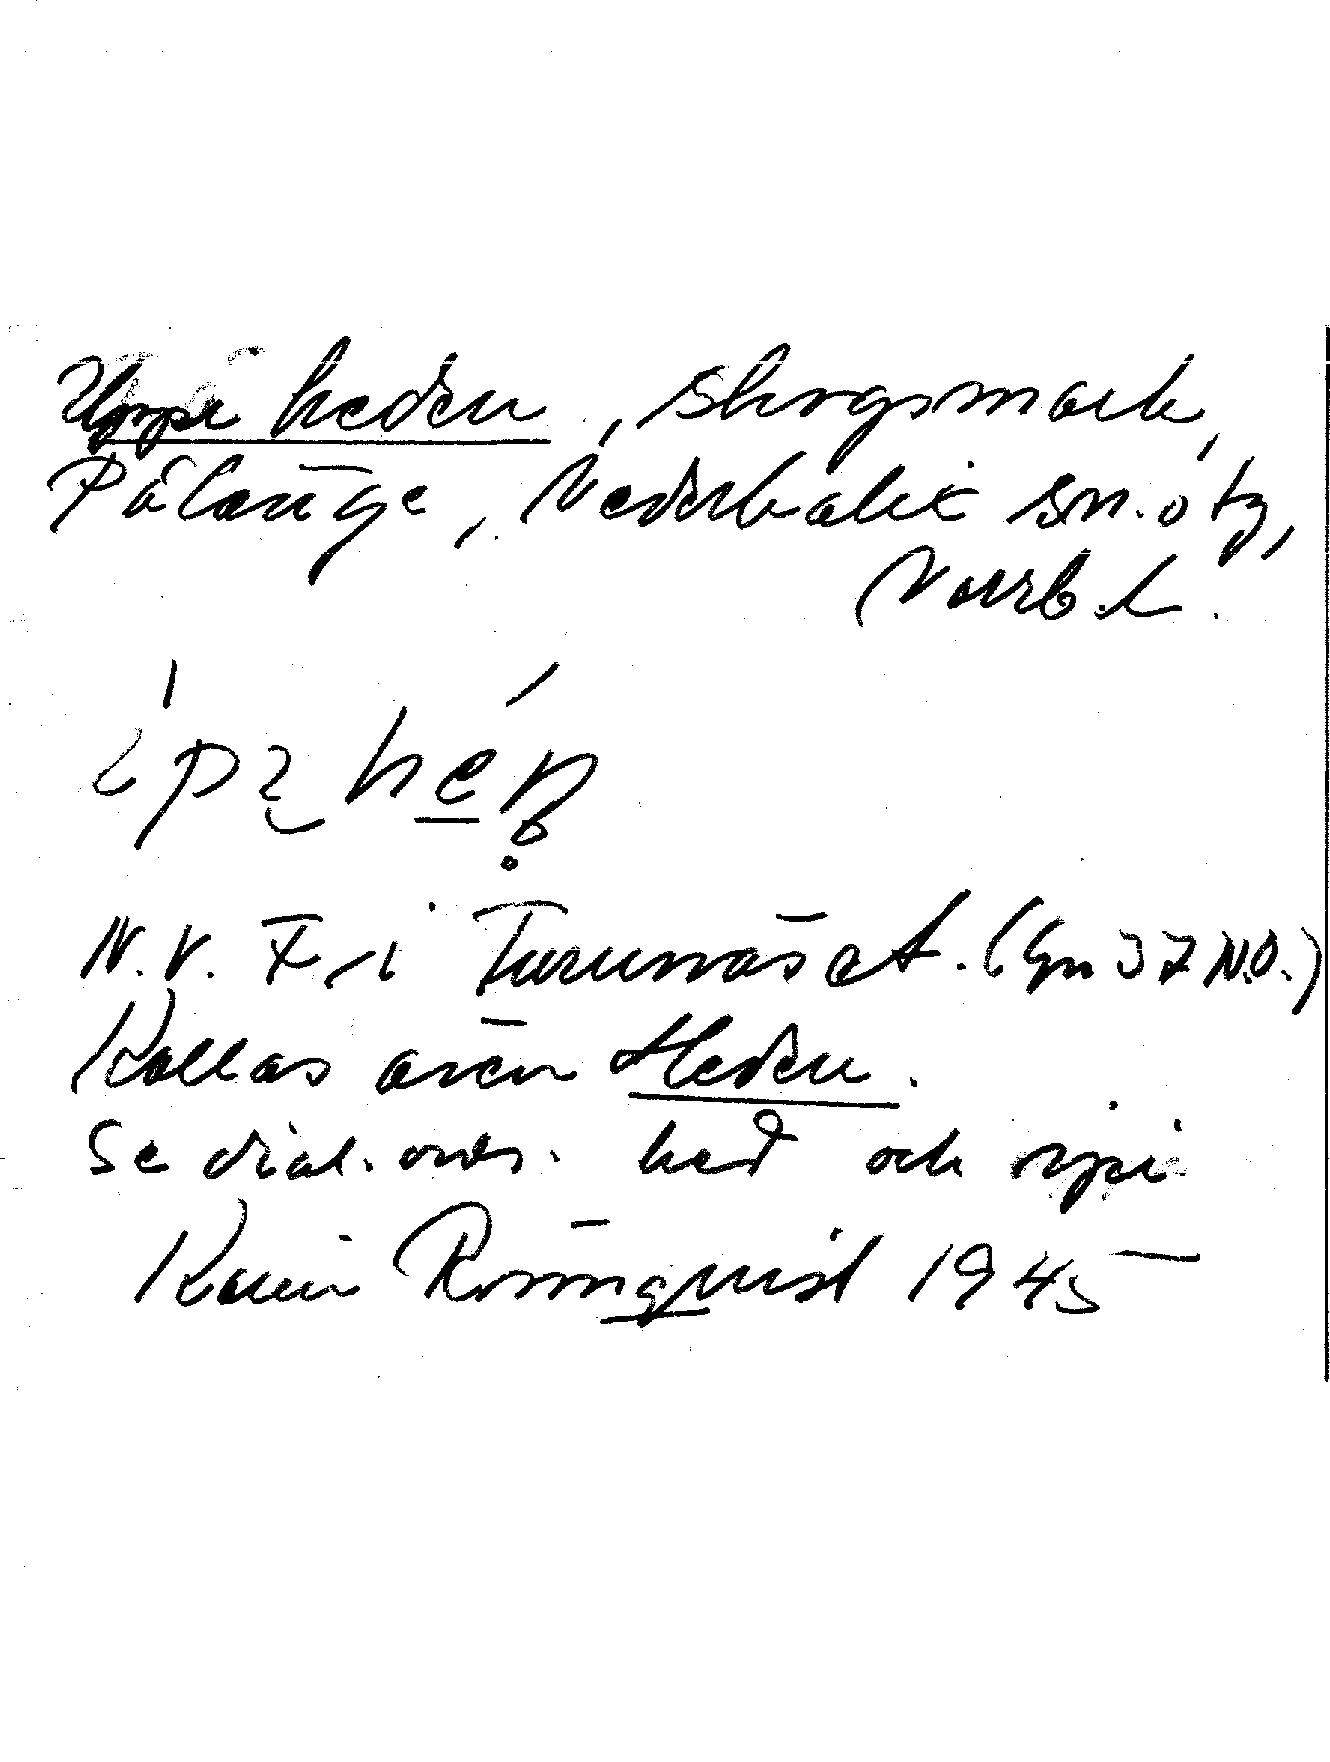 Uppi heden, skogsmark,
Pålänge, Nederkalix sn. o tg,
Norrb. l.
N.V. F. i Furumoåset. (Gn 37 N.O.)
Kallas även Heden.
Se dial. ordr. hed och uppi
Karin Rönnquist 1945